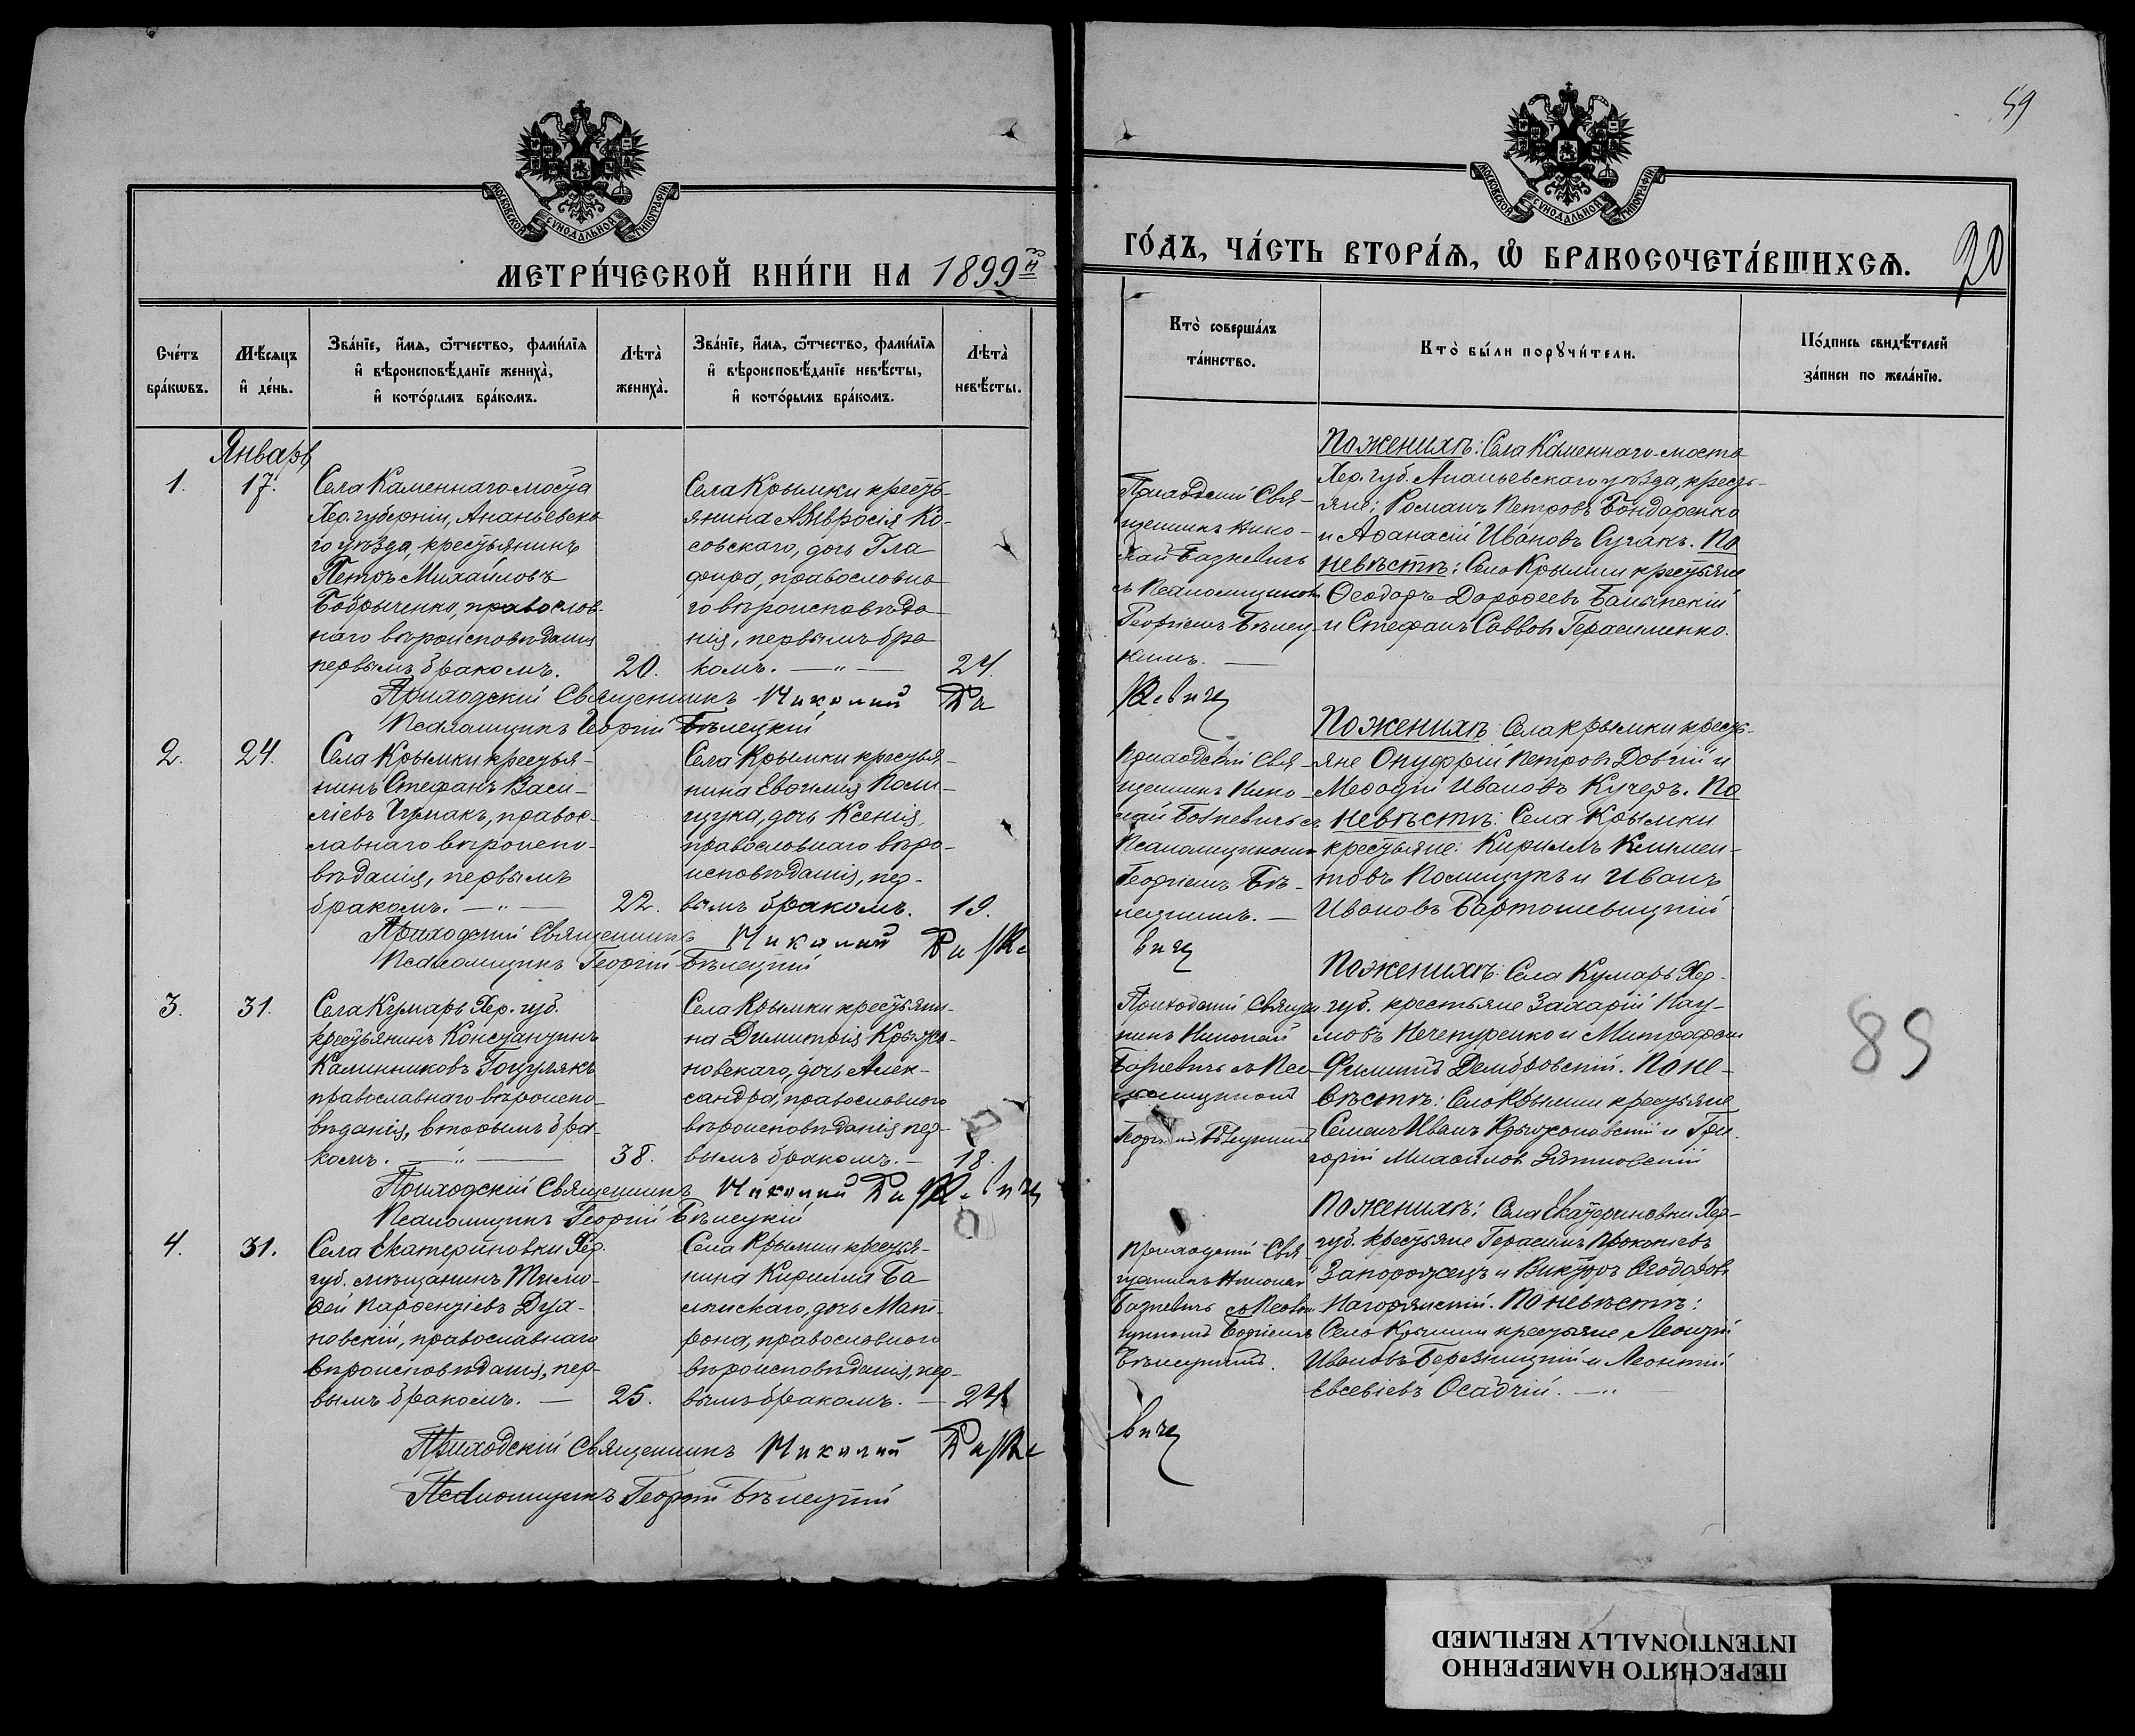 МОСКОВСКОЙ СѴНОДАЛЬНОЙ ТИПОГРАФІИ
МЕТРИ́ЧЕСКОЙ КНИ́ГИ НА 1899й
Сче́тъ бра́кѡвъ.
Мѣ́сяцъ и҆ де́нь.
Зва́нїе, и҆́мѧ, ѻ҆́тчество, фами́лїѧ
и҆ вѣроисповѣ́данїе жениха̀,
и҆ кото́рымъ бра́комъ.
Лѣта̀ жениха̀.
Зва́нїе, и҆́мѧ, ѻ҆́тчество, фами́лїѧ
и҆ вѣроисповѣ́данїе невѣ́сты,
и҆ кото́рымъ бра́комъ.
Лѣта̀ невѣ́сты.
Январь
1.
17.
Села Каменнаго моста
Хер. губерніи, Ананьевска-
го уѣзда, крестьянинъ
Петръ Михайловъ
православ-
наго вѣроисповѣданія
первымъ бракомъ.
20.
Села Крымки кресть-
янина Амвросія Ко-
совскаго, дочь Гла
фира, православна
го вѣроисповѣда
нія, первымъ бра
комъ. — " —
24.
Приходскій Священникъ Николай Ба
Псаломщикъ Георгій Бѣлецкій
2.
24.
Села Крымки крестья-
нинъ Стефанъ Васи-
ліевъ Чумакъ, правос-
лавнаго вѣроиспо-
вѣданія, первымъ
бракомъ. — " —
22.
Села Крымки крестья-
нина Евфимія Поли-
щука, дочь Ксенія,
православнаго вѣро-
исповѣданія, пер-
вымъ бракомъ.
19.
Приходскій Священникъ Николай
Псаломщикъ Георгій Бѣлецкій
3.
31.
Села Кумары Хер. губ.
крестьянинъ Константинъ
Калинниковъ Гоцулякъ
православнаго вѣроиспо-
вѣданія, вторымъ бра-
комъ. — " —
38.
Села Крымки крестьяни-
на Димитрія Крыжа-
новскаго, дочь Алек-
сандра, православнаго
вѣроисповѣданія пер-
вымъ бракомъ. —
18.
Приходскій Священникъ Николай
Псаломщикъ Георгій Бѣлецкій
4.
31.
Села Екатериновки Хер.
губ. мѣщанинъ Тимо-
фей Парфентіевъ
новскій, православнаго
вѣроисповѣданія, пер-
вымъ бракомъ. —
25.
Села Крымки крестья-
нина Кирилла Ба
дочь Мат-
рона, православнаго
вѣроисповѣданія, пер-
вымъ бракомъ. —
24
Приходскій Священникъ Николай
Псаломщикъ Георгій Бѣлецкій
59
МОСКОВСКОЙ СѴНОДАЛЬНОЙ ТИПОГРАФІИ
ГО́ДЪ, ЧА́СТЬ ВТОРА́Ѧ, Ѡ҆ БРАКОСОЧЕТА́ВШИХСѦ.
70
Кто̀ соверша́лъ
та́инство.
Кто̀ бы́ли порꙋчи́тели.
По́дпись свидѣ́телей
за́писи по жела́нїю.
Приходскій Свя-
щенникъ Нико-
лай
съ Псаломщикомъ
Георгіемъ Бѣлец
кимъ. —
По женихѣ: Села Каменнаго-моста
Хер. губ. Ананьевскаго уѣзда, кресть-
яне: Романъ Петровъ Бондаренко
и Аѳанасій Ивановъ Сугакъ. По
невѣстѣ: Села Крымки крестьяне
Ѳеодоръ Дороѳеевъ
и Стефанъ Саввовъ Герасименко.
Приходскій Свя-
щенникъ Нико-
лай
Псаломщикомъ
Георгіемъ Бѣ-
лецкимъ. —
По женихѣ: Села Крымки кресть-
яне Онуфрій Петровъ Довгій и
Меѳодій Ивановъ Кучеръ. По
невѣстѣ: Села Крымки
крестьяне: Кириллъ Климен-
товъ Полищукъ и Иванъ
Ивановъ Бартошевицкій
Приходскій Священ
никъ Николай
Георгіемъ Бѣлецкимъ
По женихѣ: Села Кумары Хер-
губ. крестьяне Захарій Нау-
мовъ Нечепуренко и Митрофанъ
Домбровскій. По не-
вѣстѣ: Села Крымки крестьяне
Семенъ Иванъ Крыжановскій и Гри-
горій Михайловъ
85
Приходскій Свя-
щенникъ Николай
Георгіемъ
Бѣлецкимъ.
По женихѣ: Села Екатериновки Хер-
губ. крестьяне Герасимъ Прокопіевъ
Запорожецъ и Викторъ Ѳеодоровъ
Нагорянскій. По невѣстѣ:
Села Крымки крестьяне Леонтій
Ивановъ Березницкій и Леонтій
Евсевіевъ Осадчій. — "
ПЕРЕСНЯТО НАМЕРЕННО
INTENTIONALLY REFILMED